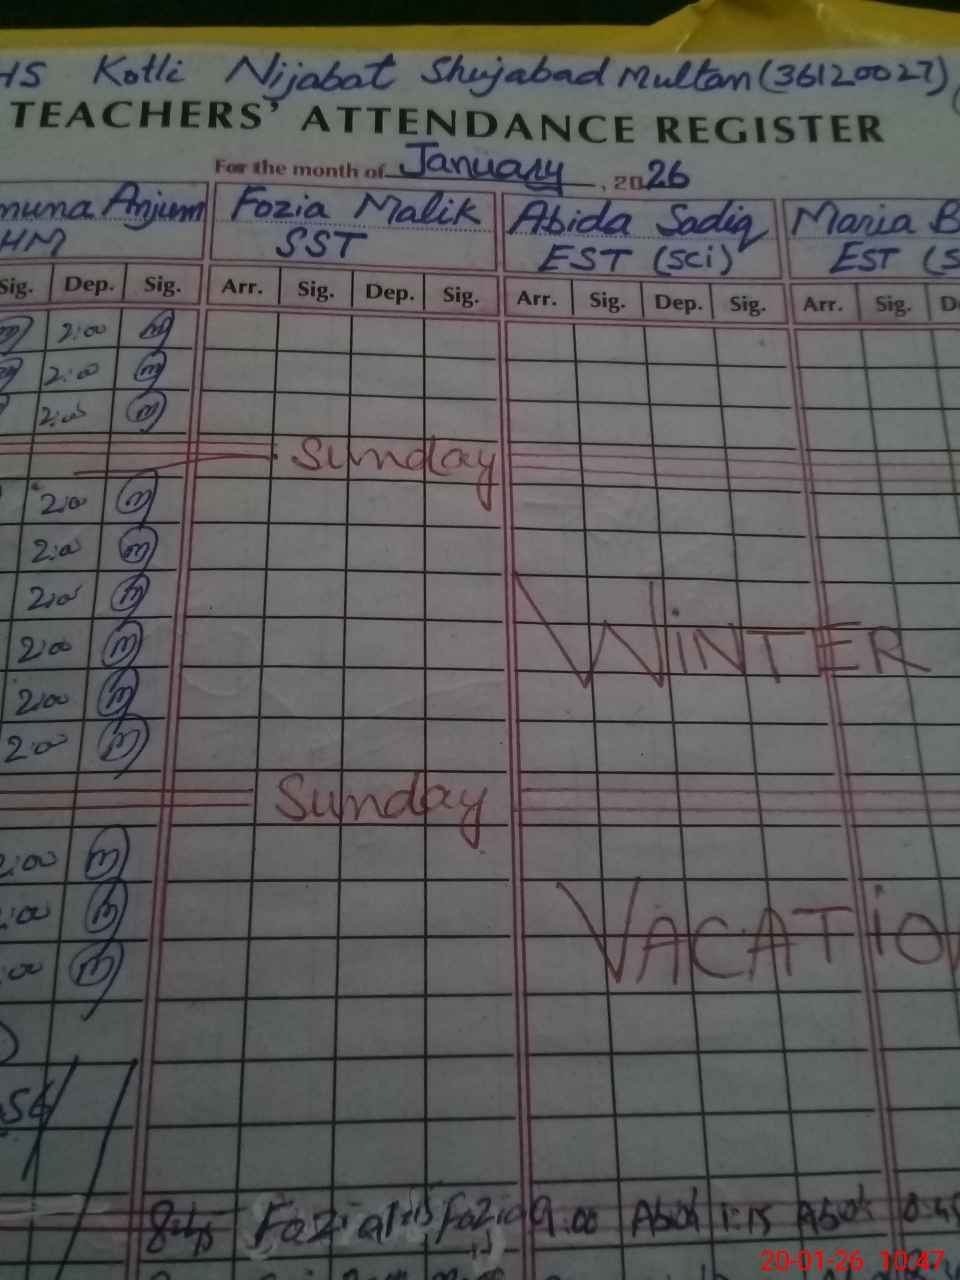 HS Kotli Nijabat Shujabad Multan (36120027)
TEACHERS' ATTENDANCE REGISTER
For the month of January, 2026
muna Anjum Fozia Malik Abida Sadiq Maria B
HM SST EST (Sci) EST (S
Sig. Dep. Sig. Arr. Sig. Dep. Sig. Arr. Sig. Dep. Sig. Arr. Sig. D
2:00
2:00
2:00
Sunday
2:00
2:00
2:00
WINTER
2:00
2:00
2:00
Sunday
2:00
:00
VACATION
:00
8:45 Fozia 1:15 Fozia 9:00 Abida 1:15 Abida 8:45
20-01-26 10:47